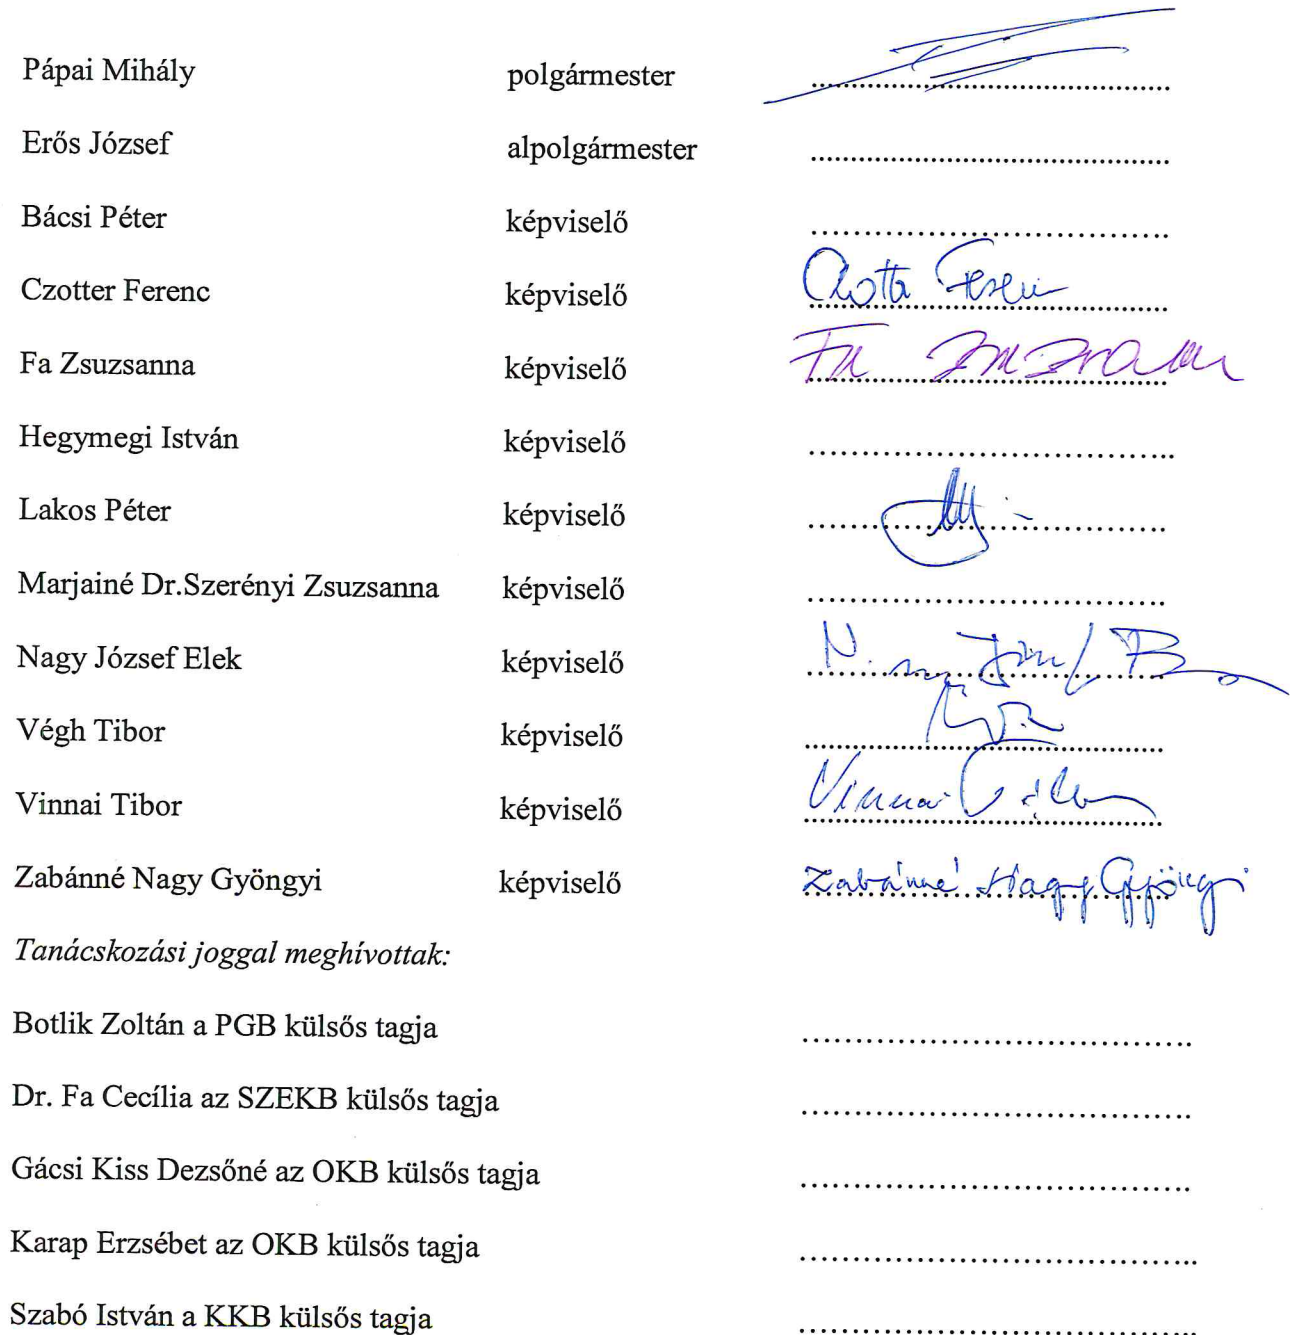 Pápai Mihály polgármester ........................................
Erős József alpolgármester ........................................
Bácsi Péter képviselő ........................................
Czotter Ferenc képviselő ........................................
Fa Zsuzsanna képviselő Fa Zsuzsanna
Hegymegi István képviselő ........................................
Lakos Péter képviselő ........................................
Marjainé Dr.Szerényi Zsuzsanna képviselő ........................................
Nagy József Elek képviselő ........................................
Végh Tibor képviselő ........................................
Vinnai Tibor képviselő Vinnai Tibor
Zabánné Nagy Gyöngyi képviselő Zabánné Nagy Gyöngyi
Tanácskozási joggal meghívottak:
Botlik Zoltán a PGB külsős tagja ........................................
Dr. Fa Cecília az SZEKB külsős tagja ........................................
Gácsi Kiss Dezsőné az OKB külsős tagja ........................................
Karap Erzsébet az OKB külsős tagja ........................................
Szabó István a KKB külsős tagja ........................................